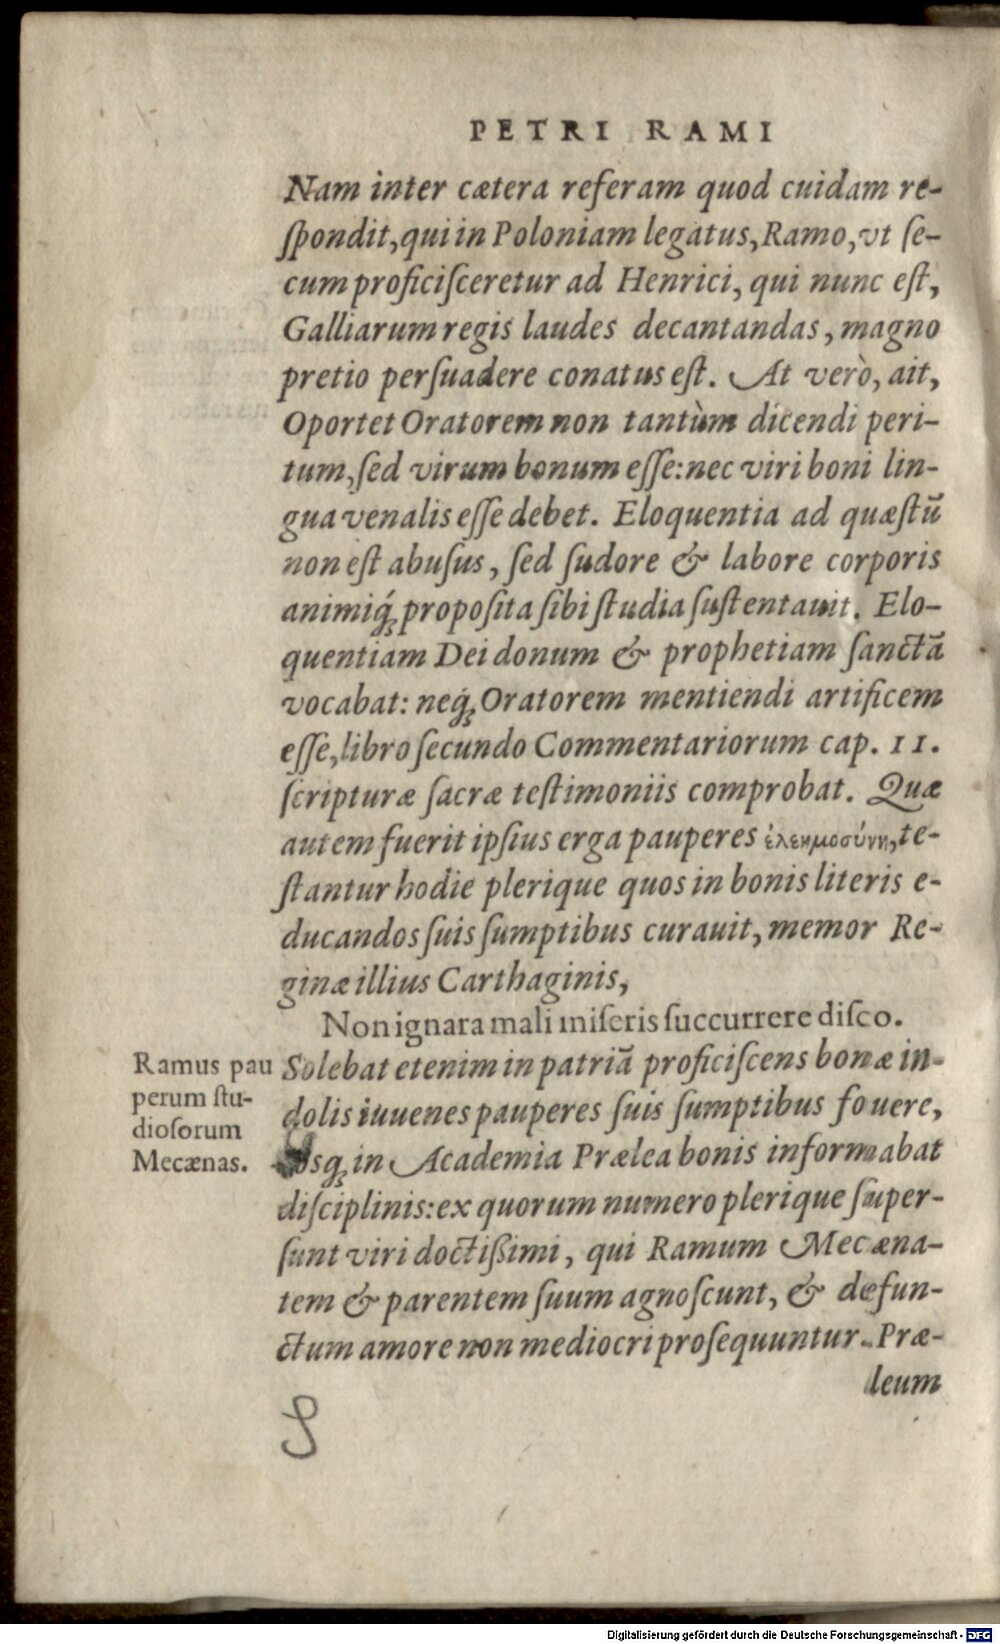 PETRI RAMI
Nam inter cætera referam quod cuidam re-
ſpondit, qui in Poloniam legatus, Ramo, vt ſe-
cum proficiſceretur ad Henrici, qui nunc eſt,
Galliarum regis laudes decantandas, magno
pretio perſuadere conatus eſt. At verò, ait,
Oportet Oratorem non tantùm dicendi peri-
tum, ſed virum bonum eſſe: nec viri boni lin-
gua venalis eſſe debet. Eloquentia ad quæſtū
non eſt abuſus, ſed ſudore & labore corporis
animiq́; propoſita ſibi ſtudia ſuſtentauit. Elo-
quentiam Dei donum & prophetiam ſanctā
vocabat: neq́; Oratorem mentiendi artificem
eſſe, libro ſecundo Commentariorum cap. 11.
ſcripturæ ſacræ teſtimoniis comprobat. Quæ
autem fuerit ipſius erga pauperes ἐλεημοσύνη, te-
ſtantur hodie plerique quos in bonis literis e-
ducandos ſuis ſumptibus curauit, memor Re-
ginæ illius Carthaginis,
Non ignara mali miſeris ſuccurrere diſco.
Ramus pau
perum ſtu-
dioſorum
Mecænas.
Solebat etenim in patriā proficiſcens bonæ in-
dolis iuuenes pauperes ſuis ſumptibus fouere,
in Academia Prælea bonis informabat
diſciplinis: ex quorum numero plerique ſuper-
ſunt viri doctißimi, qui Ramum Mecæna-
tem & parentem ſuum agnoſcunt, & defun-
ctum amore non mediocri proſequuntur. Præ-
leum
Digitalisierung gefördert durch die Deutsche Forschungsgemeinschaft - DFG